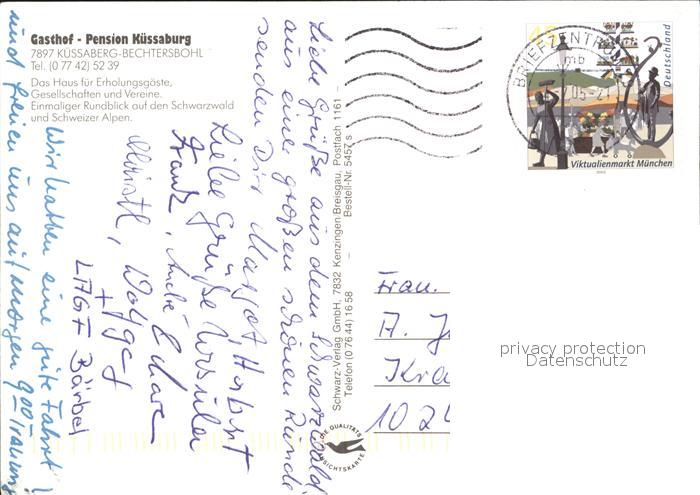 Gasthof - Pension Küssaburg
7897 KÜSSABERG-BECHTERSBOHL
Tel. (0 77 42) 52 39
Das Haus für Erholungsgäste,
Gesellschaften und Vereine.
Einmaliger Rundblick auf den Schwarzwald
und Schweizer Alpen.
Liebe Grüße aus dem Schwarzwald
aus einer großen schönen Runde
senden Dir Margot Herbert
Liebe Grüße Ursula
Frank, André & Marc
Wolfgang
+
Bärbel
Wir hatten eine gute Fahrt!
und freuen uns auf morgen 9.00
Schwarz-Verlag GmbH, 7832 Kenzingen Breisgau, Postfach 1161 –
Telefon (0 76 44) 16 58 – Bestell-Nr. 5457 s
DIE QUALITÄTS
ANSICHTSKARTE
BRIEFZENTRUM
mb
05-21
Deutschland
Viktualienmarkt München
Frau
A. J
Kra
102
privacy protection
Datenschutz